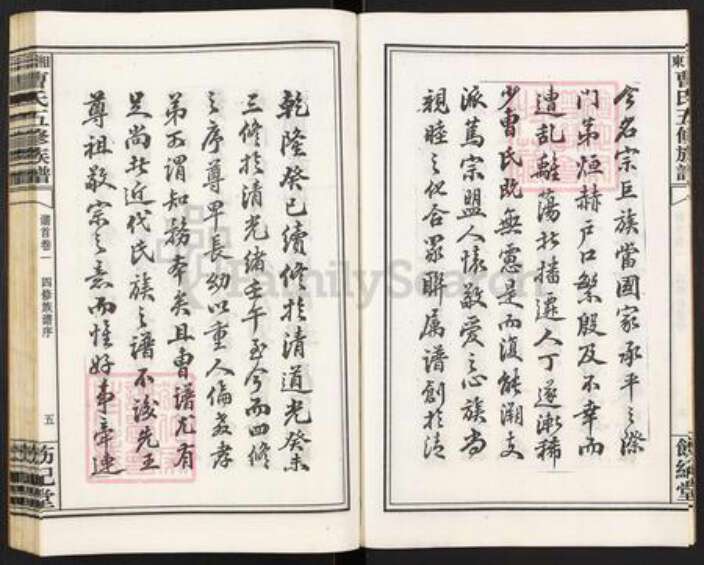 今名宗巨族當國家承平之際
門第烜赫戶口繁殷及不幸而
遭亂離蕩北播遷人丁遂漸稀
少曹氏既無慮是而復能溯支
派篤宗盟人懷敬愛之心族尚
親睦之化合眾聯属譜創於清
乾隆癸巳續修於清道光癸未
三修於清光緒壬午至今而四修
之序尊卑長幼以重人倫敦孝
弟可謂知務本矣且曹譜尤有
足尚者近代民族之譜不溯先王
尊祖敬宗之意而惟好事牽連
東 曹氏五修族譜
餞納堂
湘 曹氏五修族譜
譜首卷一 四修族譜序
五
FamilySearch